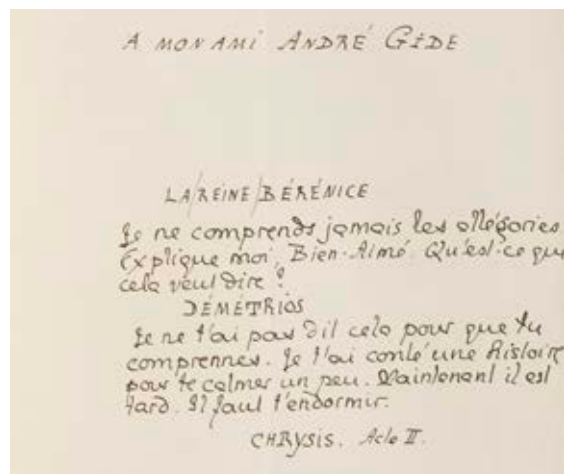 A MON AMI ANDRÉ GIDE
LA REINE BÉRÉNICE
Je ne comprends jamais les allégories
Explique moi, Bien-Aimé. Qu'est-ce que
cela veut dire ?
DÉMÉTRIOS
Je ne t'ai pas dit cela pour que tu
comprennes. Je t'ai conté une histoire
pour te calmer un peu. Maintenant il est
tard. Il faut t'endormir.
CHRYSIS. Acte II.